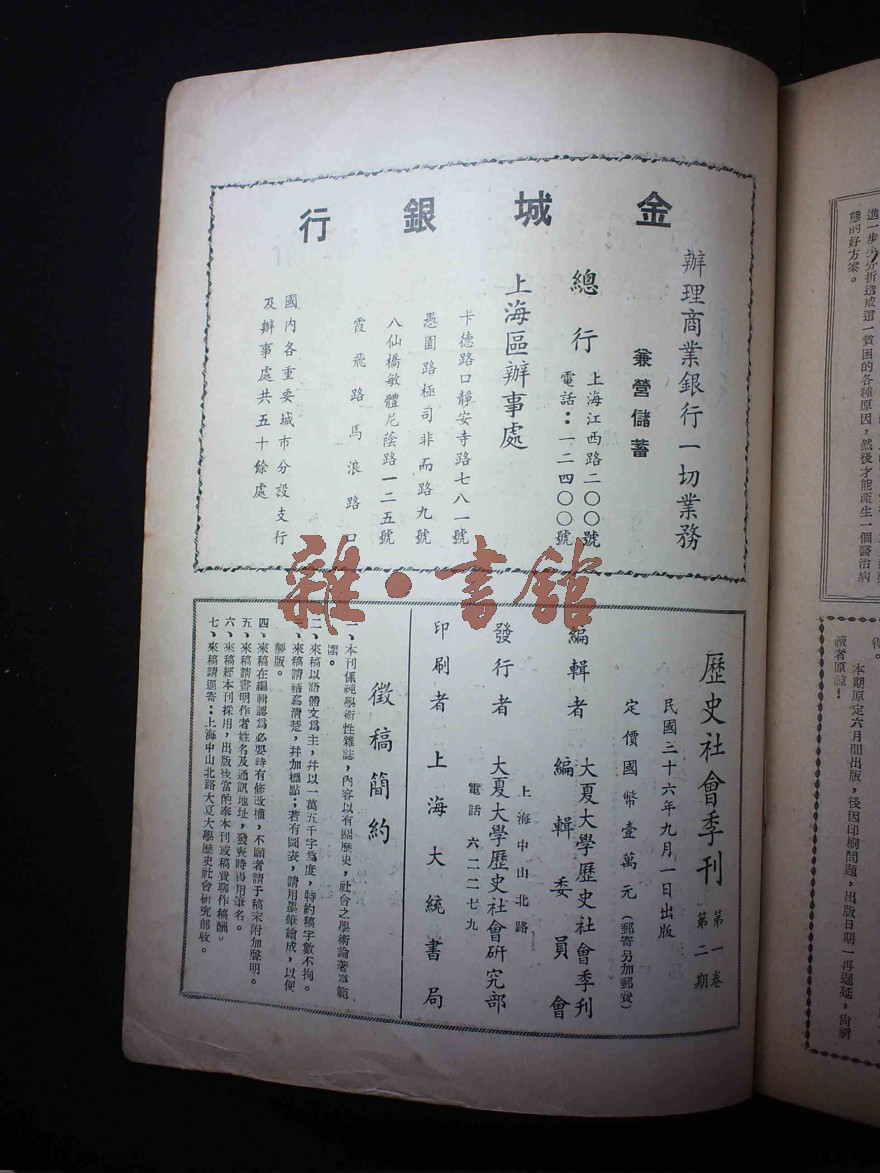 金城銀行
辦理商業銀行一切業務
兼營儲蓄
總行
上海江西路二〇〇號
電話：一二四〇〇號
上海區辦事處
卡德路口靜安寺路七八一號
愚園路極司非而路九號
八仙橋敏體尼蔭路一二五號
霞飛路馬浪路口
國內各重要城市分設支行
及辦事處共五十餘處
歷史社會季刊
第一卷
第二期
民國三十六年九月一日出版
定價國幣壹萬元（郵寄另加郵費）
編輯者
大夏大學歷史社會季刊
編輯委員會
發行者
上海中山北路
大夏大學歷史社會研究部
電話 六二二七九
印刷者 上海大統書局
徵稿簡約
一、本刊係純學術性雜誌，內容以有關歷史，社會之學術論著為範
圍。
二、來稿以語體文爲主，幷以一萬五千字爲度，特約稿字數不拘。
三、來稿請繕寫清楚，幷加標點；若有圖表，請用墨筆繪成，以便
製版。
四、來稿在編輯認爲必要時有修改權，不願者請于稿末附加聲明。
五、來稿請書明作者姓名及通訊地址，發表時得用筆名。
六、來稿經本刊採用，出版後當酌奉本刊或稿費聊作稿酬。
七、來稿請逕寄：上海中山北路大夏大學歷史社會研究部收。
雜·書館
進一步去分析造成這一貧困的各種原因，然後才能產生一個醫治病
態的好方案。
本期原定六月間出版，後因印刷問題，出版日期一再遲延，尙祈
讀者原諒！